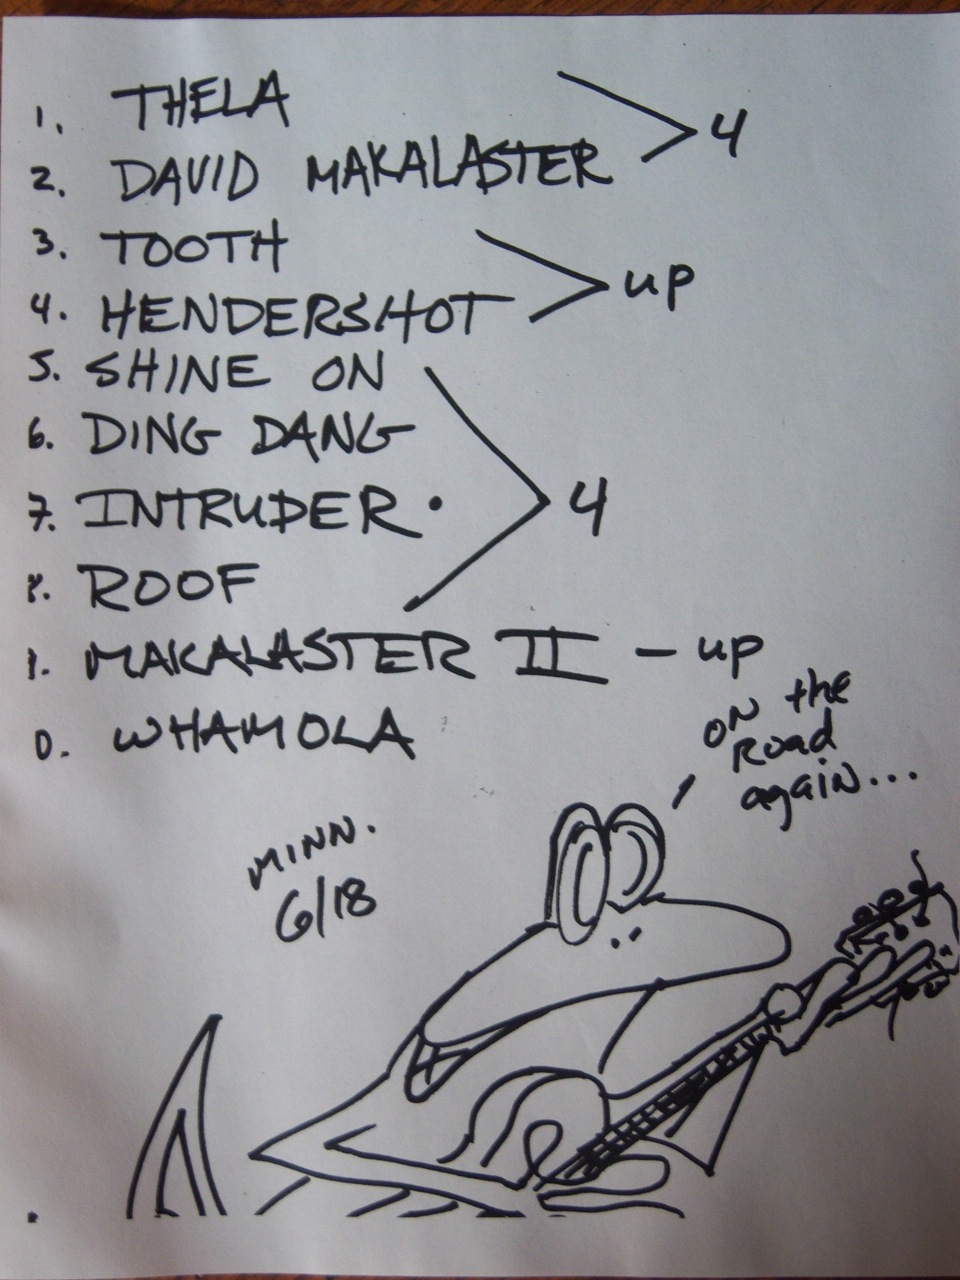 1. THELA
2. DAVID MAKALASTER
4
3. TOOTH
4. HENDERSHOT
up
5. SHINE ON
6. DING DANG
7. INTRUDER •
4
8. ROOF
1. MAKALASTER II — up
0. WHAMOLA
ON the
Road
again...
MINN.
6/18